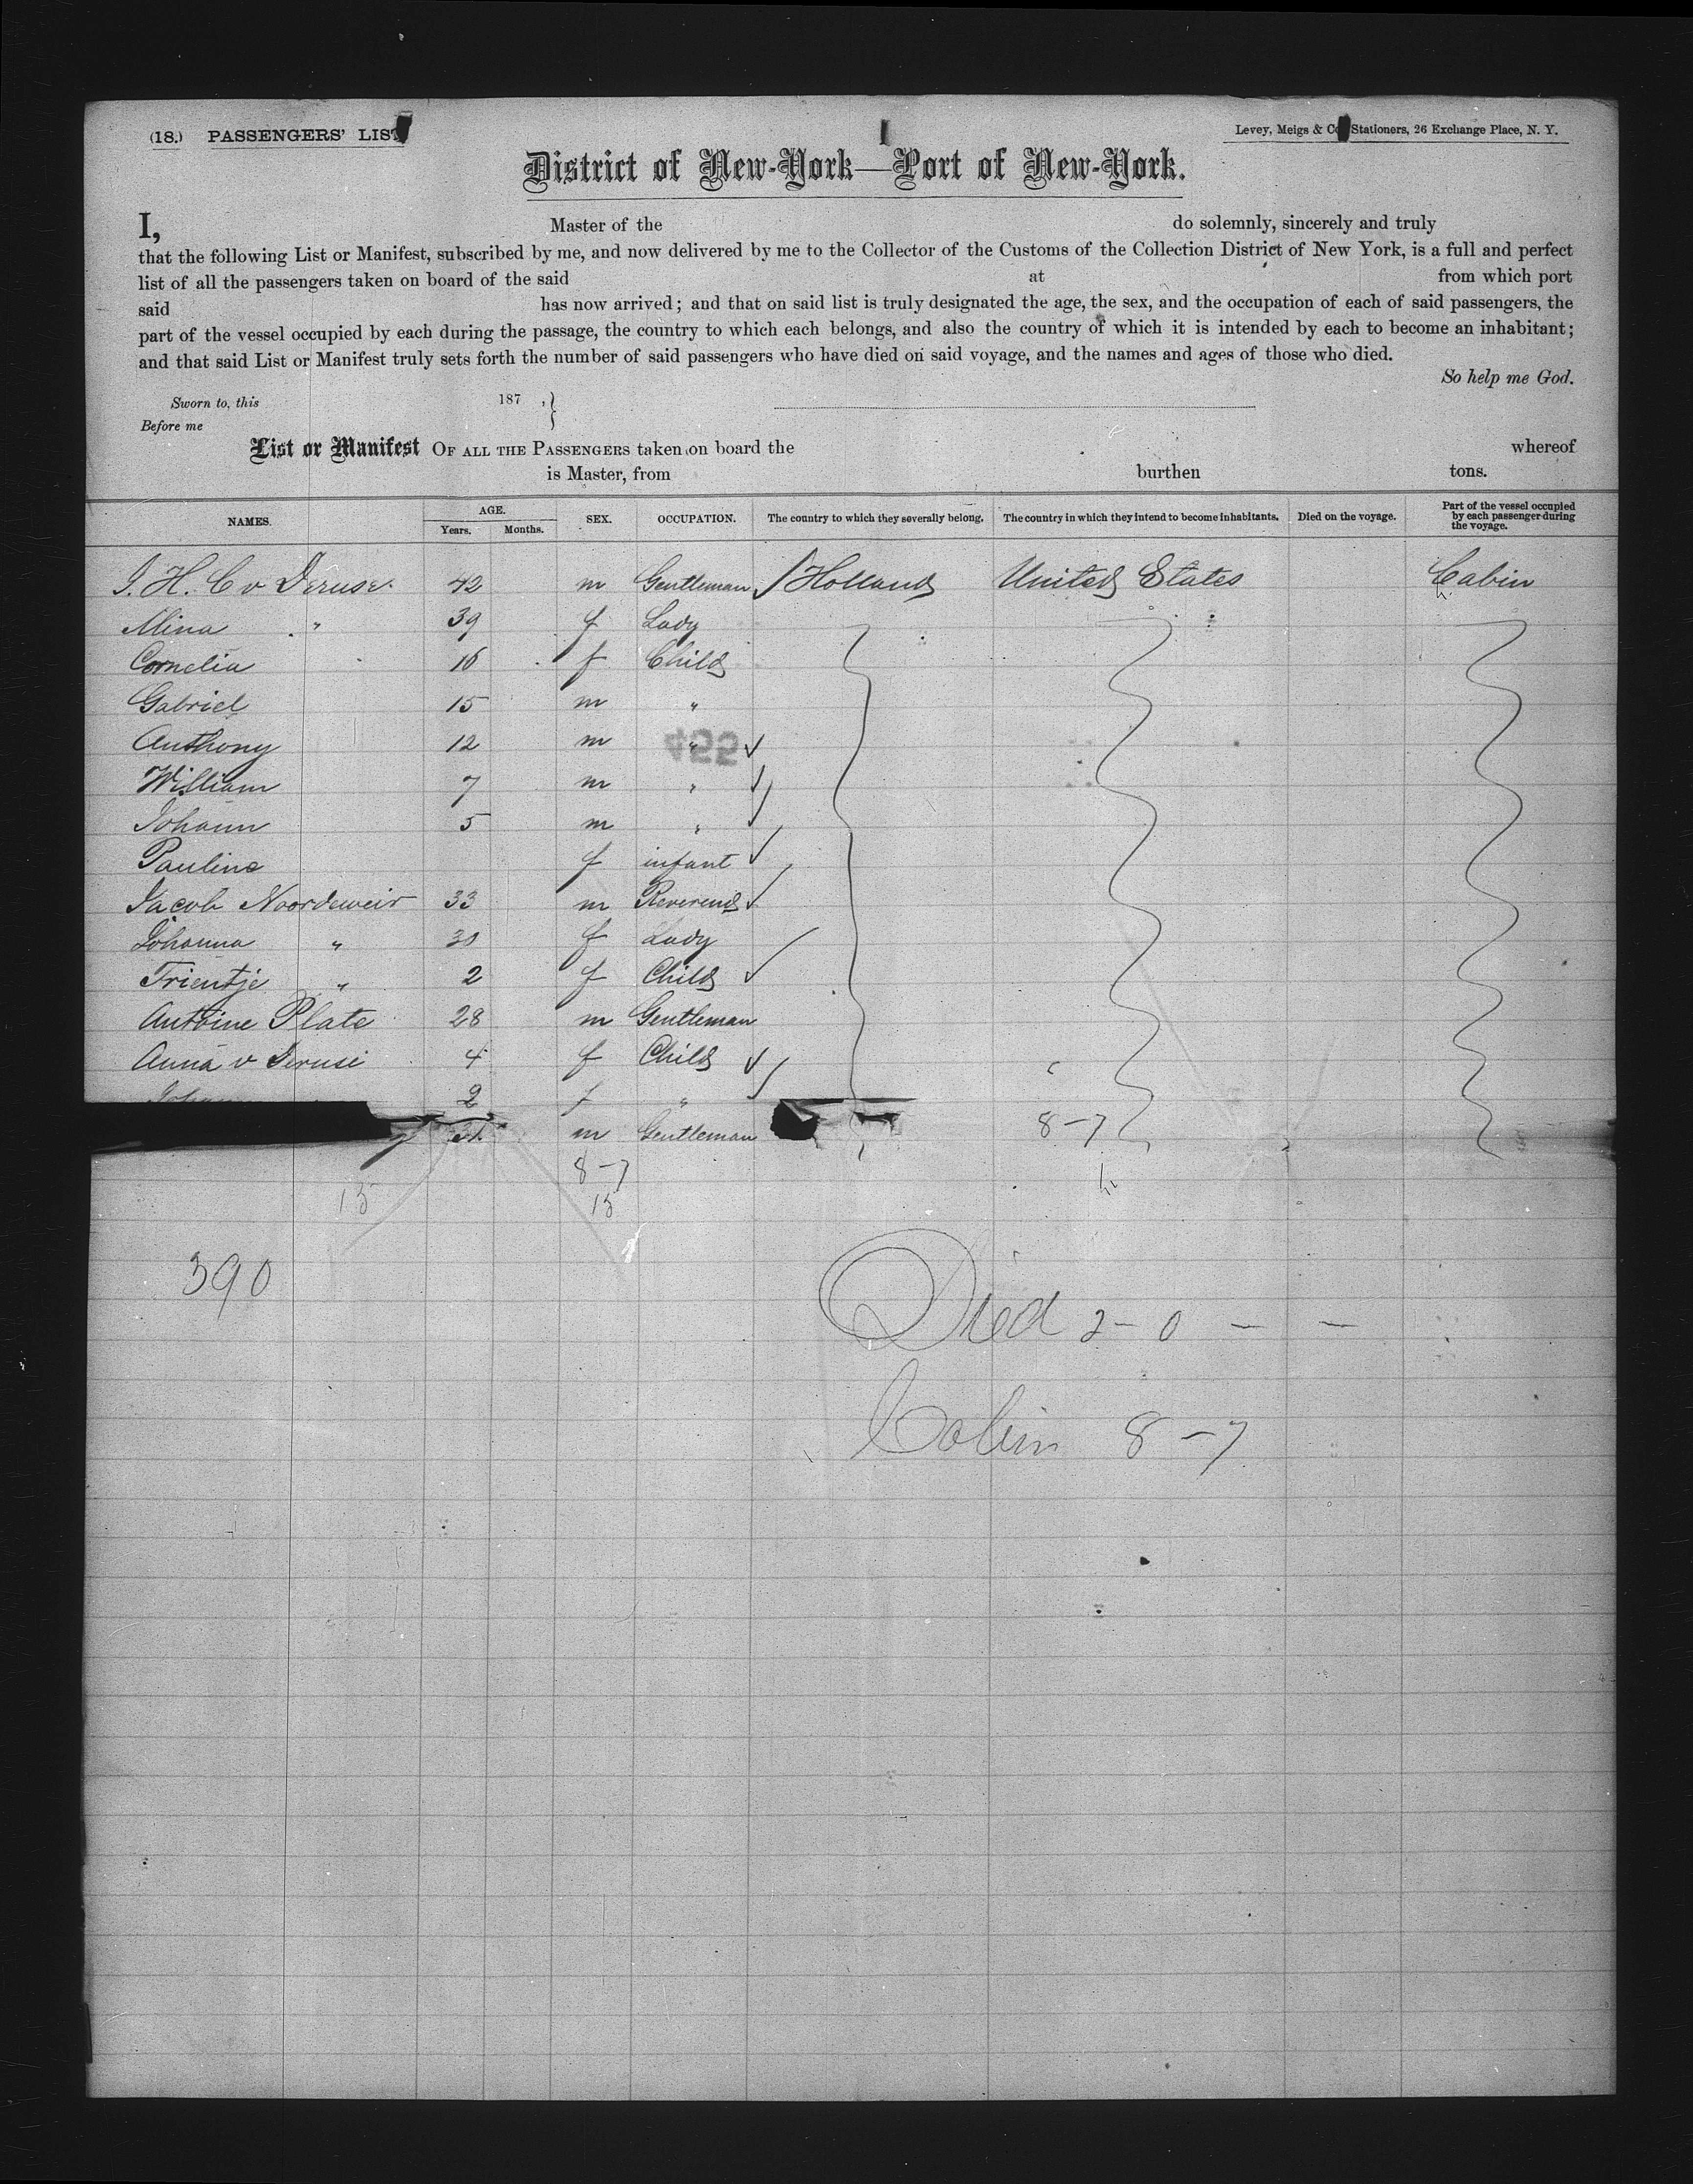 (18.) PASSENGERS' LIST
Levey, Meigs & Co Stationers, 26 Exchange Place, N. Y.
District of New-York—Port of New-York.
I, Master of the do solemnly, sincerely and truly
that the following List or Manifest, subscribed by me, and now delivered by me to the Collector of the Customs of the Collection District of New York, is a full and perfect
list of all the passengers taken on board of the said at from which port
said has now arrived; and that on said list is truly designated the age, the sex, and the occupation of each of said passengers, the
part of the vessel occupied by each during the passage, the country to which each belongs, and also the country of which it is intended by each to become an inhabitant;
and that said List or Manifest truly sets forth the number of said passengers who have died on said voyage, and the names and ages of those who died.
So help me God.
Sworn to, this 187 ,}
Before me
List or Manifest OF ALL THE PASSENGERS taken on board the whereof
is Master, from burthen tons.
NAMES. AGE. Years. Months. SEX. OCCUPATION. The country to which they severally belong. The country in which they intend to become inhabitants. Died on the voyage. Part of the vessel occupied by each passenger during the voyage.
J. H. C v 42 m Gentleman Holland United States Cabin
Mina " 39 f Lady
Cornelia 16 f Child
Gabriel 15 m "
Anthony 12 m "
455
William 7 m "
Johann 5 m "
Pauline f infant
Jacob Noordeweir 33 m Reverend
Johanna " 30 f Lady
Trientje " 2 f Child
Antoine Plate 28 m Gentleman
Anna v 4 f Child
2 f "
m Gentleman 8-7
8-7
15 15
390
Died 2-0 — —
Cabin 8-7